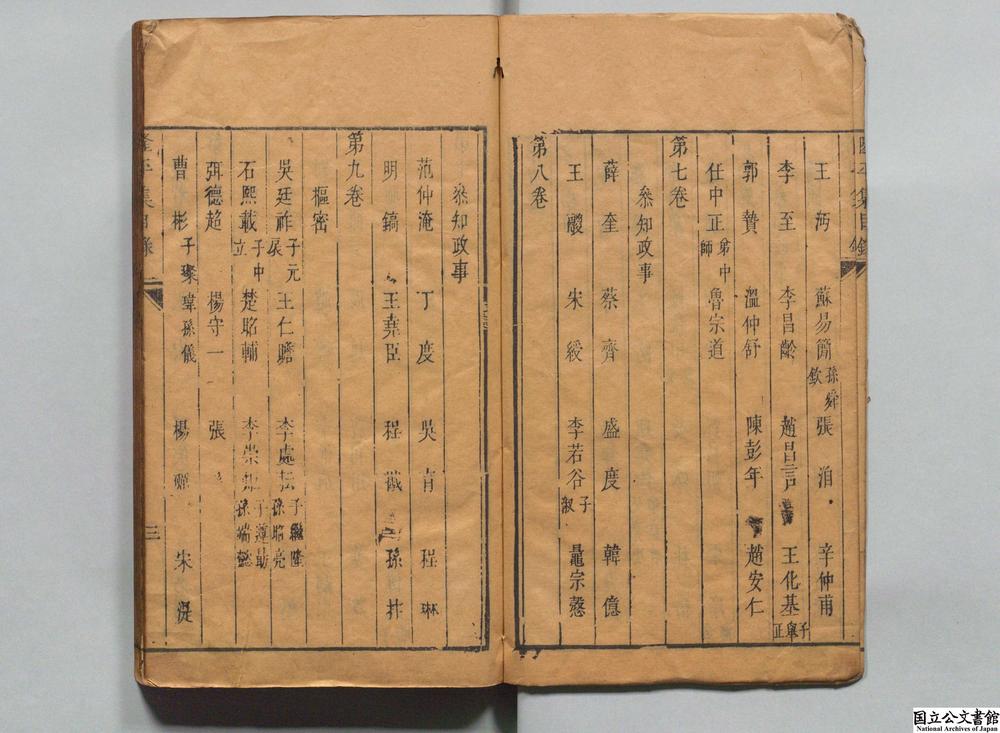 王沔　蘇易簡孫舜欽　張洎　辛仲甫
李至　李昌齡　趙昌言　王化基子舉正
郭贄　溫仲舒　陳彭年　趙安仁
任中正弟中師　魯宗道
第七卷
叅知政事
薛奎　蔡齊　盛度　韓億
王鬷　宋綬　李若谷子淑　鼂宗愨
第八卷
叅知政事
范仲淹　丁度　吳育　程琳
明鎬　王堯臣　程戡　孫抃
第九卷
樞密
吳廷祚子元扆　王仁贍　李處耘子繼隆孫昭亮
石熙載子中立　楚昭輔　李崇矩子遵勗孫端懿
弭德超　楊守一　張
曹彬子璨瑋孫儀　楊　宋湜
隆平集目錄
三
国立公文書館
National Archives of Japan